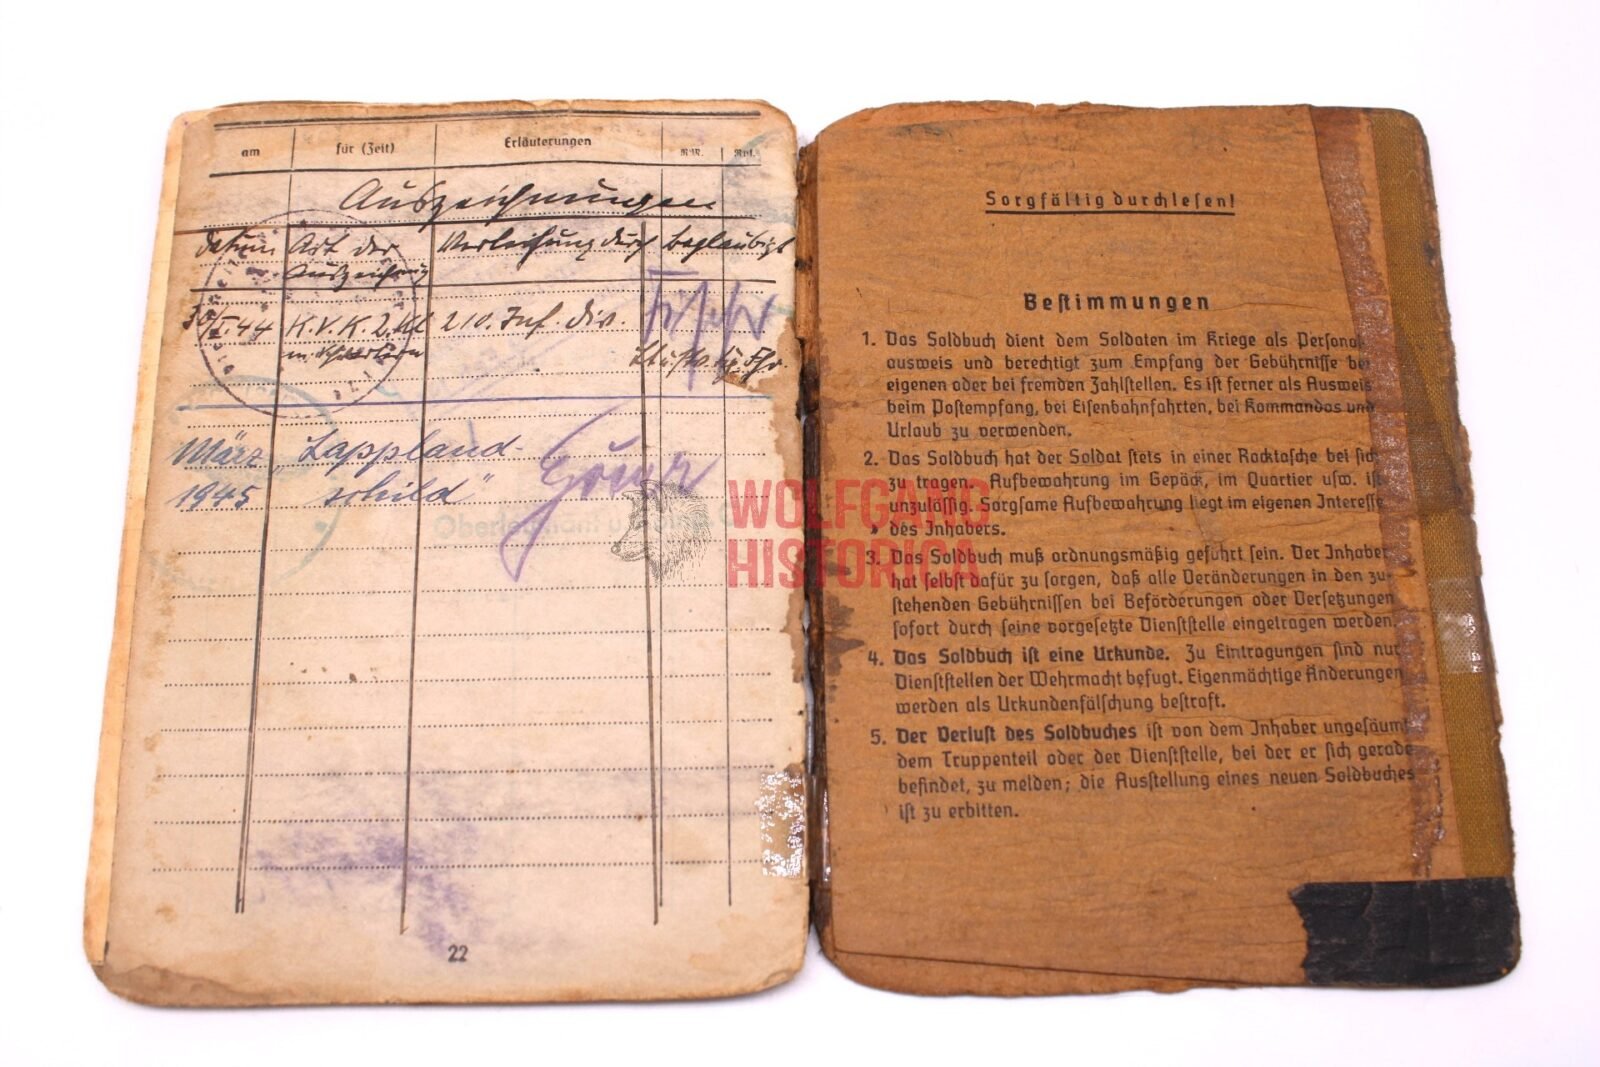 am für (Zeit) Erläuterungen R.M. Rpf.
Auszeichnungen
Datum Art der Verleihung durch beglaubigt
Auszeichnung
30.I.44 K.V.K. 2. Kl 210. Inf. Div.
m. Schwertern
März „Lappland-
1945 schild"
Oberleutnant u.
22
Sorgfältig durchlesen!
Bestimmungen
1. Das Soldbuch dient dem Soldaten im Kriege als Personal-
ausweis und berechtigt zum Empfang der Gebührnisse bei
eigenen oder bei fremden Zahlstellen. Es ist ferner als Ausweis
beim Postempfang, bei Eisenbahnfahrten, bei Kommandos und
Urlaub zu verwenden.
2. Das Soldbuch hat der Soldat stets in einer Rocktasche bei sich
zu tragen. Aufbewahrung im Gepäck, im Quartier usw. ist
unzulässig. Sorgsame Aufbewahrung liegt im eigenen Interesse
des Inhabers.
3. Das Soldbuch muß ordnungsmäßig geführt sein. Der Inhaber
hat selbst dafür zu sorgen, daß alle Veränderungen in den zu-
stehenden Gebührnissen bei Beförderungen oder Versetzungen
sofort durch seine vorgesetzte Dienststelle eingetragen werden.
4. Das Soldbuch ist eine Urkunde. Zu Eintragungen sind nur
Dienststellen der Wehrmacht befugt. Eigenmächtige Änderungen
werden als Urkundenfälschung bestraft.
5. Der Verlust des Soldbuches ist von dem Inhaber ungesäumt
dem Truppenteil oder der Dienststelle, bei der er sich gerade
befindet, zu melden; die Ausstellung eines neuen Soldbuches
ist zu erbitten.
WOLFGANG
HISTORICA